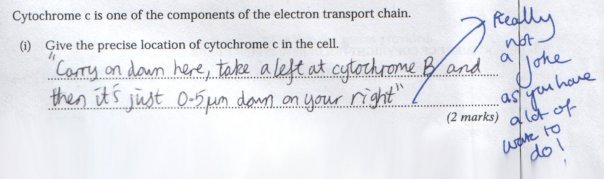 Cytochrome c is one of the components of the electron transport chain.
(i) Give the precise location of cytochrome c in the cell.
"Carry on down here, take a left at cytochrome B and
then it's just 0.5µm down on your right"
(2 marks)
Really
not
a joke
as you have
a lot of
work to
do!